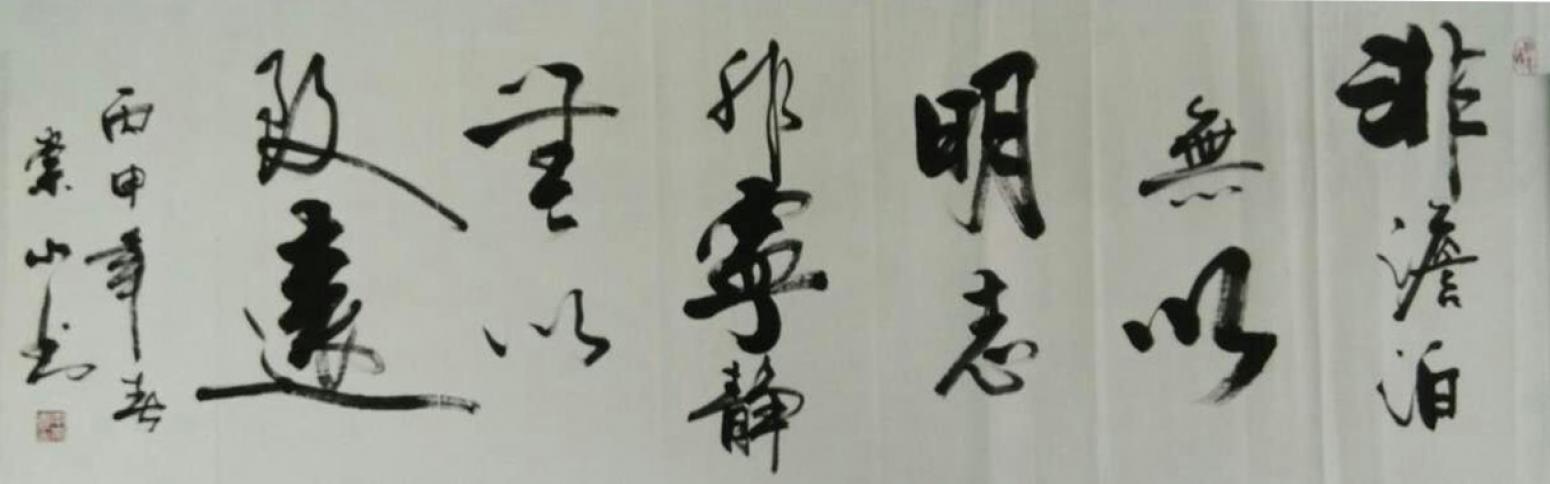 非澹泊
無以
明志
非寧靜
無以
致遠
丙申年春
崇山書